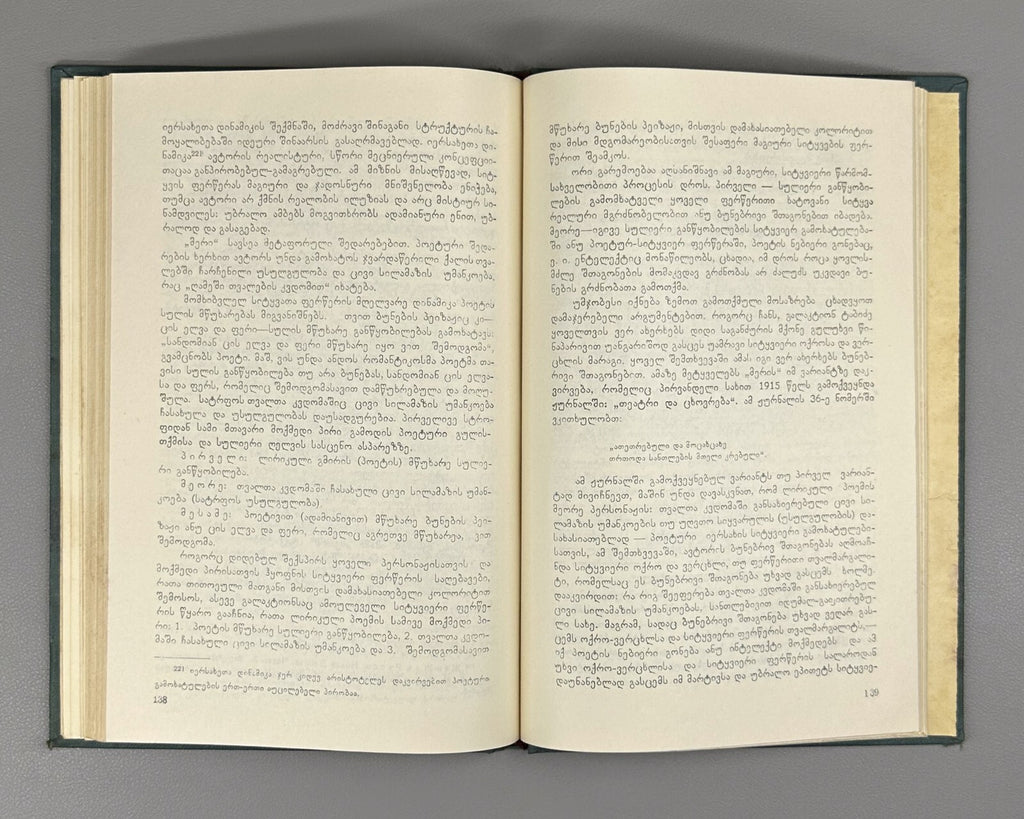 იერსახეთა დინამიკის შექმნაში, მოძრავი შინაგანი სტრუქტურის ჩა-
მოყალიბებაში იდეური შინაარსის გასაღრმავებლად. იერსახეთა დი-
ნამიკა²²¹ ავტორის რეალისტური, სწორი მეცნიერული კონცეფციი-
თაცაა განპირობებულ-გამაგრებული. ამ მიზნის მისაღწევად, სიტ-
ყვის ფერწერას მაგიური და ჯადოსნური მნიშვნელობა ენიჭება,
თუმცა ავტორი არ ქმნის რეალობის ილუზიას და არც მისტიურ სი-
ნამდვილეს: უბრალო ამბებს მოგვითხრობს ადამიანური ენით, უბ-
რალოდ და გასაგებად.
„მერი“ სავსეა მეტაფორული შედარებებით. პოეტური შედა-
რების ხერხით ავტორს უნდა გამოხატოს ჯვარდაწერილი ქალის თვა-
ლებში ჩარჩენილი უსულგულობა და ცივი სილამაზის უმანკოება,
რაც „ღამეში თვალების კვდომით“ იხატება.
მომხიბვლელ სიტყვათა ფერწერის მღელვარე დინამიკა პოეტის
სულის მწუხარებას მიგვანიშნებს. თვით ბუნების პეიზაჟიც კი—
ცის ელვა და ფერი—სულის მწუხარე განწყობილებას გამოხატავს:
„სანდომიან ცის ელვა და ფერი მწუხარე იყო ვით შემოდგომა“,
გვამცნობს პოეტი. მაშ, ვის უნდა ანდოს რომანტიკოსმა პოეტმა თა-
ვისი სულის განწყობილება თუ არა ბუნებას, სანდომიან ცის ელვა-
სა და ფერს, რომელიც შემოდგომასავით დამწუხრებულა და მოღუ-
შულა. სატრფოს თვალთა კვდომაშიც ცივი სილამაზის უმანკოება
ჩასახულა და უსულგულობას დაუსადგურებია. პირველივე სტრო-
ფიდან სამი მთავარი მოქმედი პირი გამოდის პოეტური გულის-
თქმისა და სულიერი ღელვის სასცენო ასპარეზზე.
პირველი: ლირიკული გმირის (პოეტის) მწუხარე სულიე-
რი განწყობილება.
მეორე: თვალთა კვდომაში ჩასახული ცივი სილამაზის უმან-
კოება (სატრფოს უსულგულობა)
მესამე: პოეტივით (ადამიანივით) მწუხარე ბუნების პეი-
ზაჟი ანუ ცის ელვა და ფერი, რომელიც აგრეთვე მწუხარეა, ვით
შემოდგომა.
როგორც დიდებულ შექსპირს ყოველი პერსონაჟისათვის და
მოქმედი პირისათვის ჰყოფნის სიტყვიერი ფერწერის საღებავები,
რათა თითოეული მათგანი მისთვის დამახასიათებელი კოლორიტით
შემოსოს, ასევე გალაკტიონსაც ამოულეველი სიტყვიერი ფერწე-
რის წყარო გააჩნია, რათა ლირიკული პოემის სამივე მოქმედი პი-
რი: 1. პოეტის მწუხარე სულიერი განწყობილება, 2. თვალთა კვდო-
მაში ჩასახული ცივი სილამაზის უმანკოება და 3. შემოდგომასავით
²²¹ იერსახეთა დინამიკა ჯერ კიდევ არისტოტელეს დაკვირვებით პოეტური
გამოხატულების ერთ-ერთი აუცილებელი პირობაა.
138
მწუხარე ბუნების პეიზაჟი, მისთვის დამახასიათებელი კოლორიტით
და მისი მდგომარეობისათვის შესაფერი მაგიური სიტყვების ფერ-
წერით შეამკოს.
ორი გარემოებაა აღსანიშნავი ამ მაგიური, სიტყვიერი წარმომ-
სახველობითი პროცესის დროს. პირველი — სულიერი განწყობი-
ლების გამომხატველი ყოველი ფერწერითი ხატოვანი სიტყვა
რეალური მგრძნობელობით ანუ ბუნებრივი შთაგონებით იბადება.
მეორე—იგივე სულიერი განწყობილების სიტყვიერ გამოხატულება-
ში ანუ პოეტურ-სიტყვიერ ფერწერაში, პოეტის ნებიერი გონებაც,
ე. ი. ენტელექტიც მონაწილეობს, ცხადია, იმ დროს როცა ყოვლის-
მძლე შთაგონების მომაკვდავ გრძნობას არ ძალუძს უკვდავი ბუ-
ნების გრძნობათა გამოთქმა.
უმჯობესი იქნება ზემოთ გამოთქმული მოსაზრება ცხადვყოთ
დამაჯერებელი არგუმენტებით. როგორც ჩანს, გალაკტიონ ტაბიძე
ყოველთვის ვერ ახერხებს დიდი საგანძურის მქონე გულუხვი წი-
ნაპარივით უანგარიშოდ გასცეს უამრავი სიტყვიერი ოქროსა და ვერ-
ცხლის მარაგი. ყოველ შემთხვევაში ამას იგი ვერ ახერხებს ბუნებ-
რივი შთაგონებით. ამაზე მეტყველებს „მერის“ იმ ვარიანტზე დაკ-
ვირვება, რომელიც პირვანდელი სახით 1915 წელს გამოქვეყნდა
ჟურნალში: „თეატრი და ცხოვრება“. ამ ჟურნალის 36-ე ნომერში
ვკითხულობთ:
„ათეთრებული და მოცახცახე
თრთოდა სანთლების მთელი კრებული“.
ამ ჟურნალში გამოქვეყნებულ ვარიანტს თუ პირველ ვარიან-
ტად მივიჩნევთ, მაშინ უნდა დავასკვნათ, რომ ლირიკული პოემის
მეორე პერსონაჟის: თვალთა კვდომაში განსახიერებული ცივი სი-
ლამაზის უმანკოების თუ უღვთო სიყვარულის (უსულგულობის) და-
სახასიათებლად — პოეტური იერსახის სიტყვიერი გამოხატულები-
სათვის, ამ შემთხვევაში, ავტორის ბუნებრივ შთაგონებას აღმოაჩ-
ნდა სიტყვიერი ოქრო და ვერცხლი, თუ ფერწერითი თვალმარგალი-
ტი, რომელსაც ეს ბუნებრივი შთაგონება უხვად გასცემს ხოლმე.
დააკვირდით: რა რიგ შეეფერება თვალთა კვდომაში განსახიერებულ
ცივი სილამაზის უმანკოებას, სანთლებივით იდუმალ-გაფითრებუ-
ლი სახე. მაგრამ, სადაც ბუნებრივი შთაგონება უხვად ვეღარ გას-
ცემს ოქრო-ვერცხლსა და სიტყვიერი ფერწერის თვალმარგალიტს,—
იქ პოეტის ნებიერი გონება ანუ ინტელექტი მოქმედებს და ამ
უხვი ოქრო-ვერცხლისა და სიტყვიერი ფერწერის სალაროდან
დაუნანებლად გასცემს იმ მარტივსა და უბრალო ეპითეტს სიტყვიე-
139